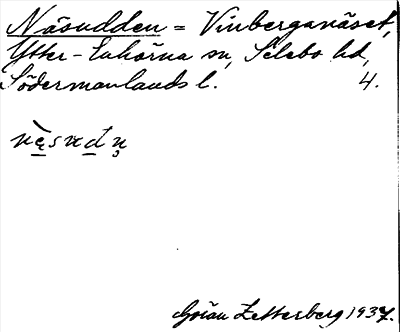 Näsudden = Vinberganäset,
Ytter-Enhörna sn, Selebo hd,
Södermanlands l. 4.
Göran Zetterberg 1937.